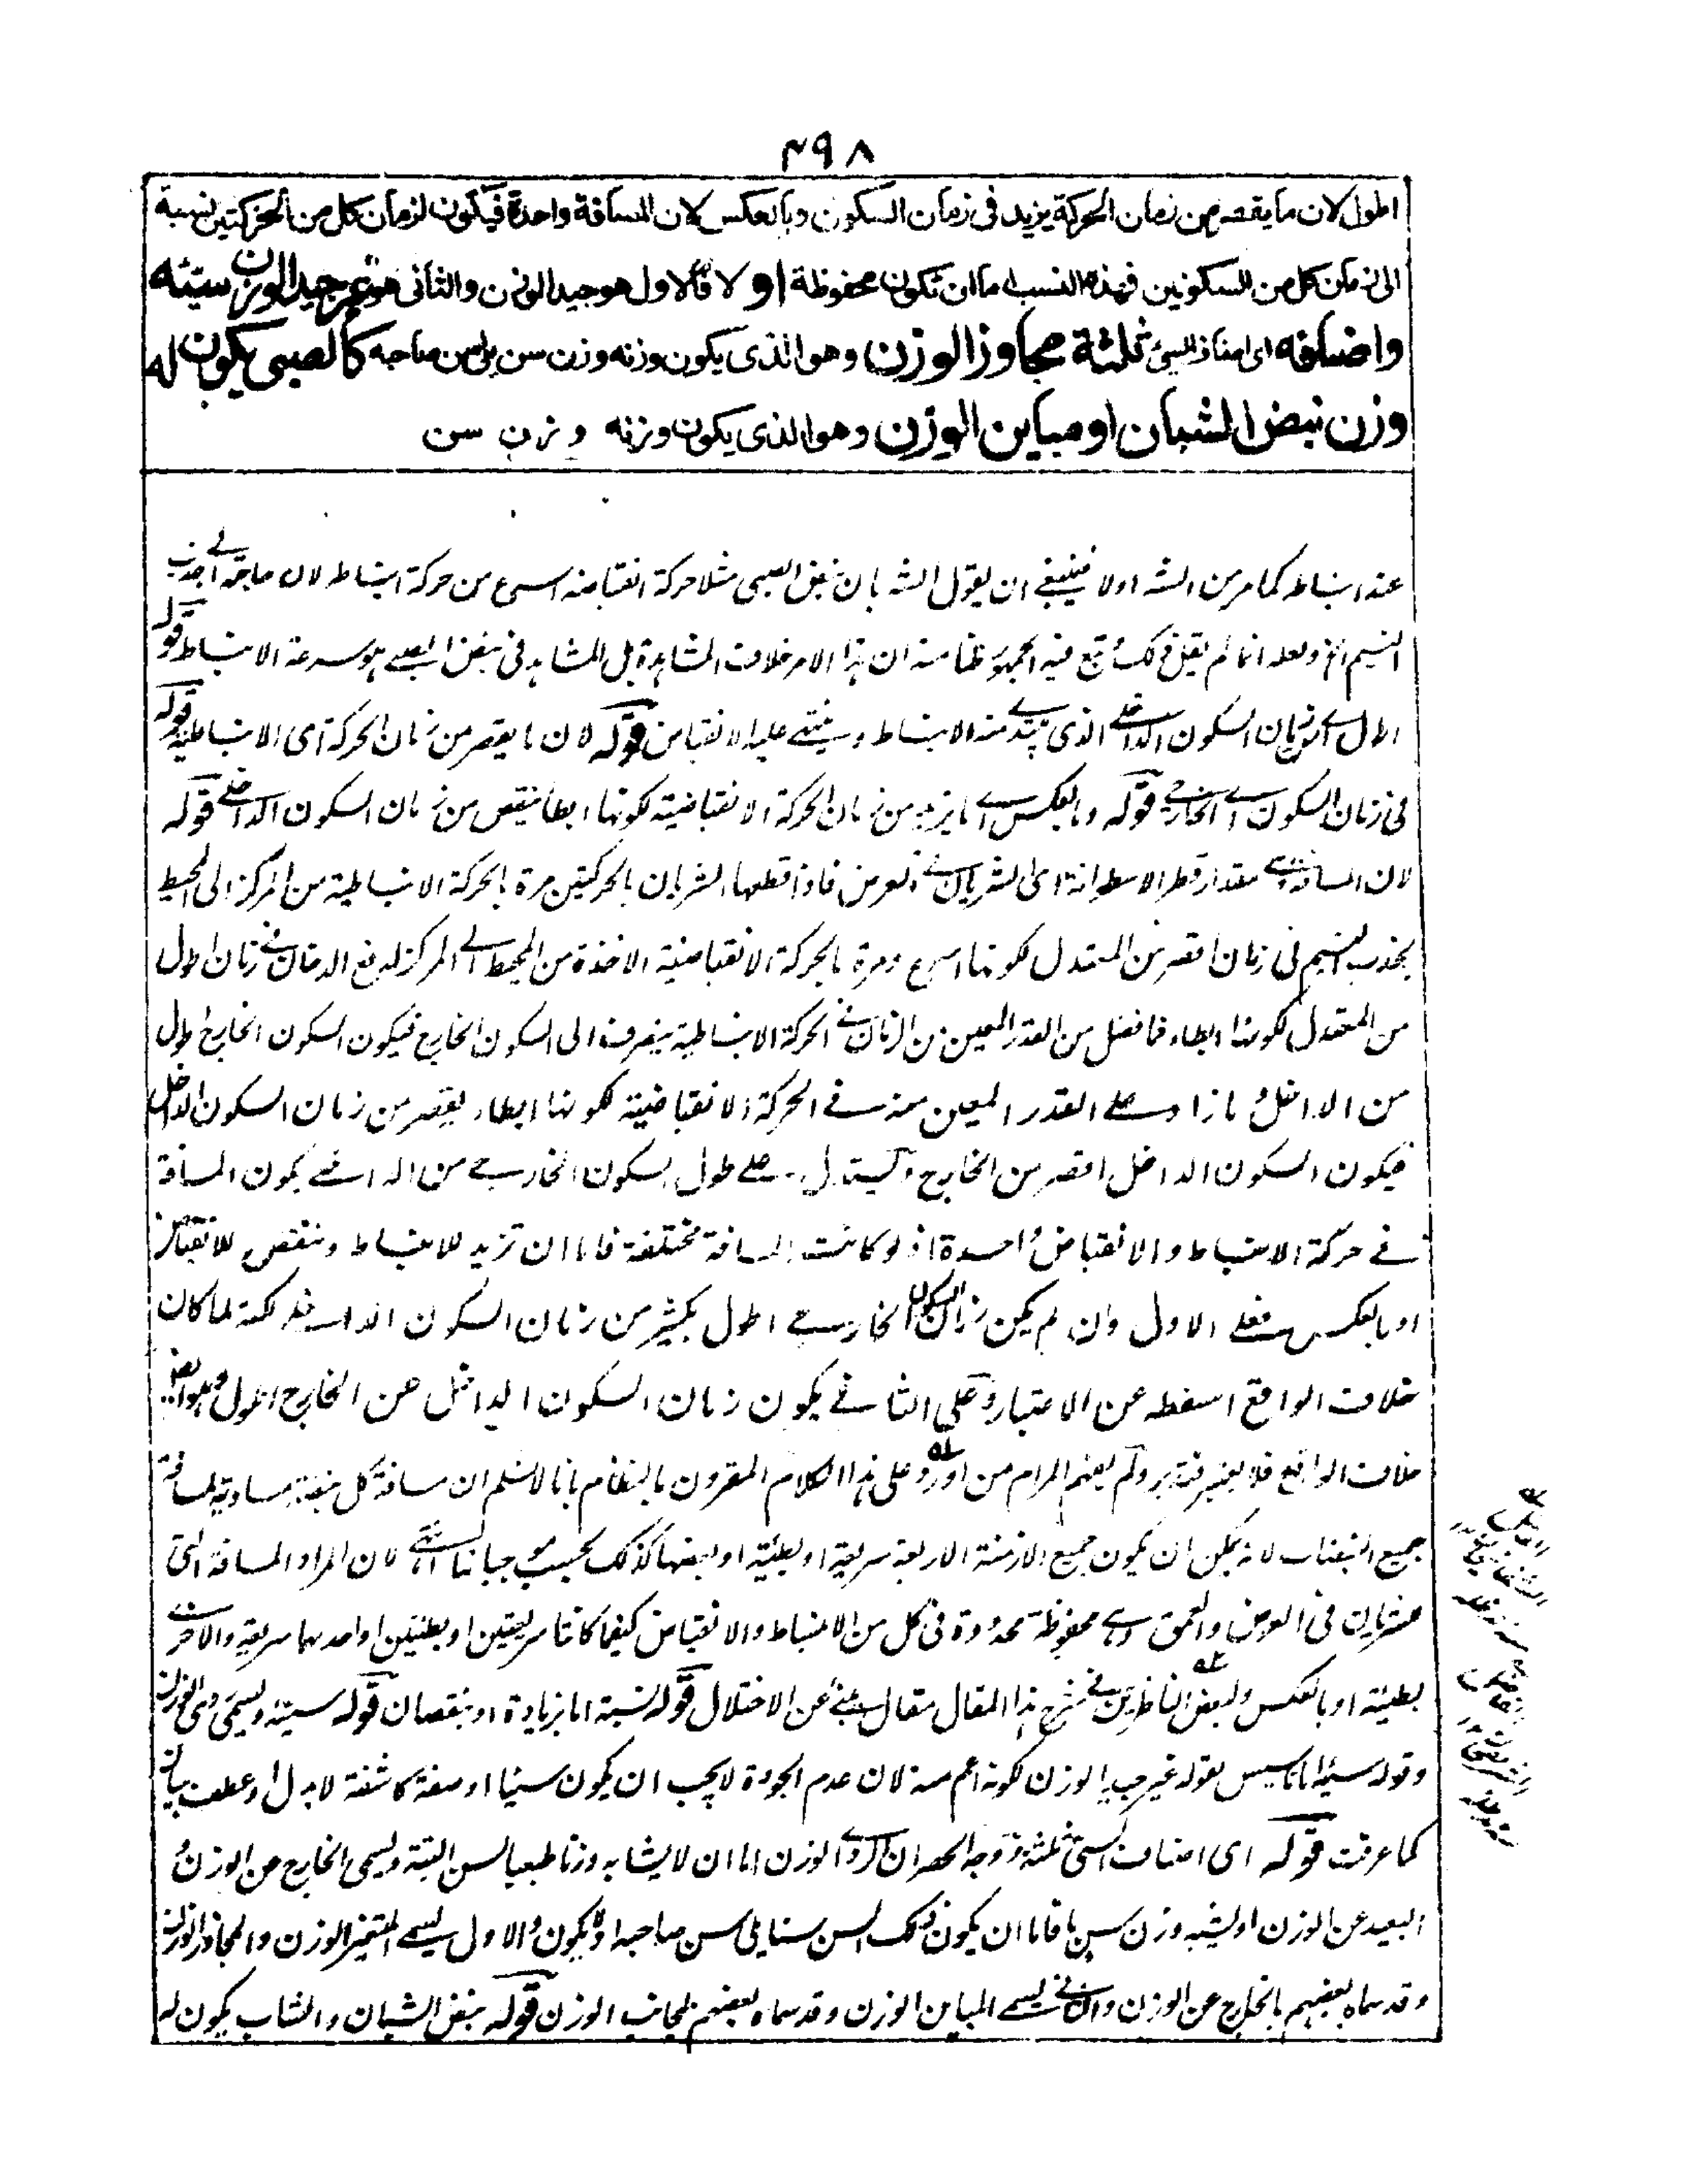 ۴۹۸
اطول لان ما يقصر من زمان الحركة يزيد فى زمان السكون وبالعكس لان المسافة واحدة فيكون لزمان كل من الحركتين نسبة
الى زمان كل من السكونين فهذه النسب اما ان تكون محفوظة او لا فالاول هو جيد الوزن والثانى هو غير جيد الوزن سيئه
واصنافه اى اصناف السيئ ثلثة مجاوز الوزن وهو الذى يكون وزنه وزن سن يلى سن صاحبه كالصبى يكون له
وزن نبض الشبان او مباين الوزن وهو الذى يكون وزنه وزن سن
عند انبساطه كما مر من الشه اولا فينبغى ان يقول الشه بان نبض الصبى مثلا حركة انقباضه اسرع من حركة انبساطه لان حاجته الى جذب
النسيم الخ ولعله انما لم يقل ذلك تبع فيه الجمهور ظنا منه ان هذا الامر خلاف المشاهدة بل المشاهد فى نبض الصبى هو سرعة الانبساط قوله
اطول اى من زمان السكون الداخلى الذى يبتدئ منه الانبساط وينتهى عليه الانقباض قوله لان ما يقصر من زمان الحركة اى الانبساطية قوله
فى زمان السكون اى الخارجى قوله وبالعكس اى ما يزيد من زمان الحركة الانقباضية لكونها ابطأ ينقص من زمان السكون الداخلى قوله
لان المسافة وهى مقدار قطر الاسطوانة اى الشريان فى العرض فاذا قطعها الشريان بالحركتين مرة بالحركة الانبساطية من المركز الى المحيط
بجذب النسيم فى زمان اقصر من المعتدل لكونها اسرع ومرة بالحركة الانقباضية الاخذة من المحيط الى المركز لدفع الدخان فى زمان اطول
من المعتدل لكونها ابطاء فما فضل من القدر المعين من الزمان فى الحركة الانبساطية ينصرف الى السكون الخارج فيكون السكون الخارج اطول
من الداخل وما زاد على القدر المعين منه فى الحركة الانقباضية لكونها ابطاء يقصر من زمان السكون الداخل
فيكون السكون الداخل اقصر من الخارج ويستدل على طول السكون الخارجى من الداخلى بكون المسافة
فى حركة الانبساط والانقباض واحدة اذ لو كانت المسافة مختلفة فاما ان تزيد للانبساط وتنقص للانقباض
او بالعكس فعلى الاول وان لم يكن زمان السكون الخارجى اطول بكثير من زمان السكون الداخلى لكنه لما كان
خلاف الواقع اسقطه عن الاعتبار وعلى الثانى يكون زمان السكون الداخل عن الخارج اطول وهو ايضا
خلاف الواقع فلا يعتبر فتدبر ولم يفهم المرام من اورد على هذا الكلام المقرون بالنظام بانا لا نسلم ان مسافة كل نبضة مساوية لمسافة
جميع النبضات لانه يمكن ان يكون جميع الازمنة الاربعة سريعة او بطيئة او بعضها كذلك بحسب انتهى لان المراد المسافة التى
للشريان فى العرض والعمق وهى محفوظة محدودة فى كل من الانبساط والانقباض كيفما كانتا سريعتين او بطيئتين او احدهما سريعة والاخرى
بطيئة او بالعكس ولبعض الناظرين فى شرح هذا المقال مقال ينبئ عن الاختلال قوله نسبة اما بزيادة او بنقصان قوله سيئه ويسمى ردى الوزن
وقوله سيئه اما تاسيس بقوله غير جيد الوزن لكونه اعم منه لان عدم الجودة لا يجب ان يكون سيئا او صفة كاشفة لا بدل او عطف بيان
كما عرفت قوله اى اصناف السيئ ثلثة ووجه الحصر ان ردى الوزن اما ان لا يشابه وزنا طبعيا لسن البتة ويسمى الخارج عن الوزن و
البعيد عن الوزن او يشبه وزن سن ما فاما ان يكون ذلك السن سنا يلى سن صاحبه او لا يكون والاول يسمى المتغير الوزن والمجاوز الوزن
وقد سماه بعضهم بالخارج عن الوزن والثانى يسمى المباين الوزن وقد سماه بعضهم المجانب الوزن قوله نبض الشبان والشاب يكون له